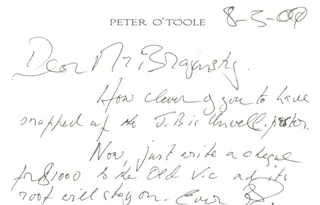 PETER O'TOOLE
8-3-00
Dear Mr.
How clever of you to have
snapped up the J.B is Unwell. poster.
Now, just write a cheque
for $1000 to the Old Vic and its
roof will stay on. Ever